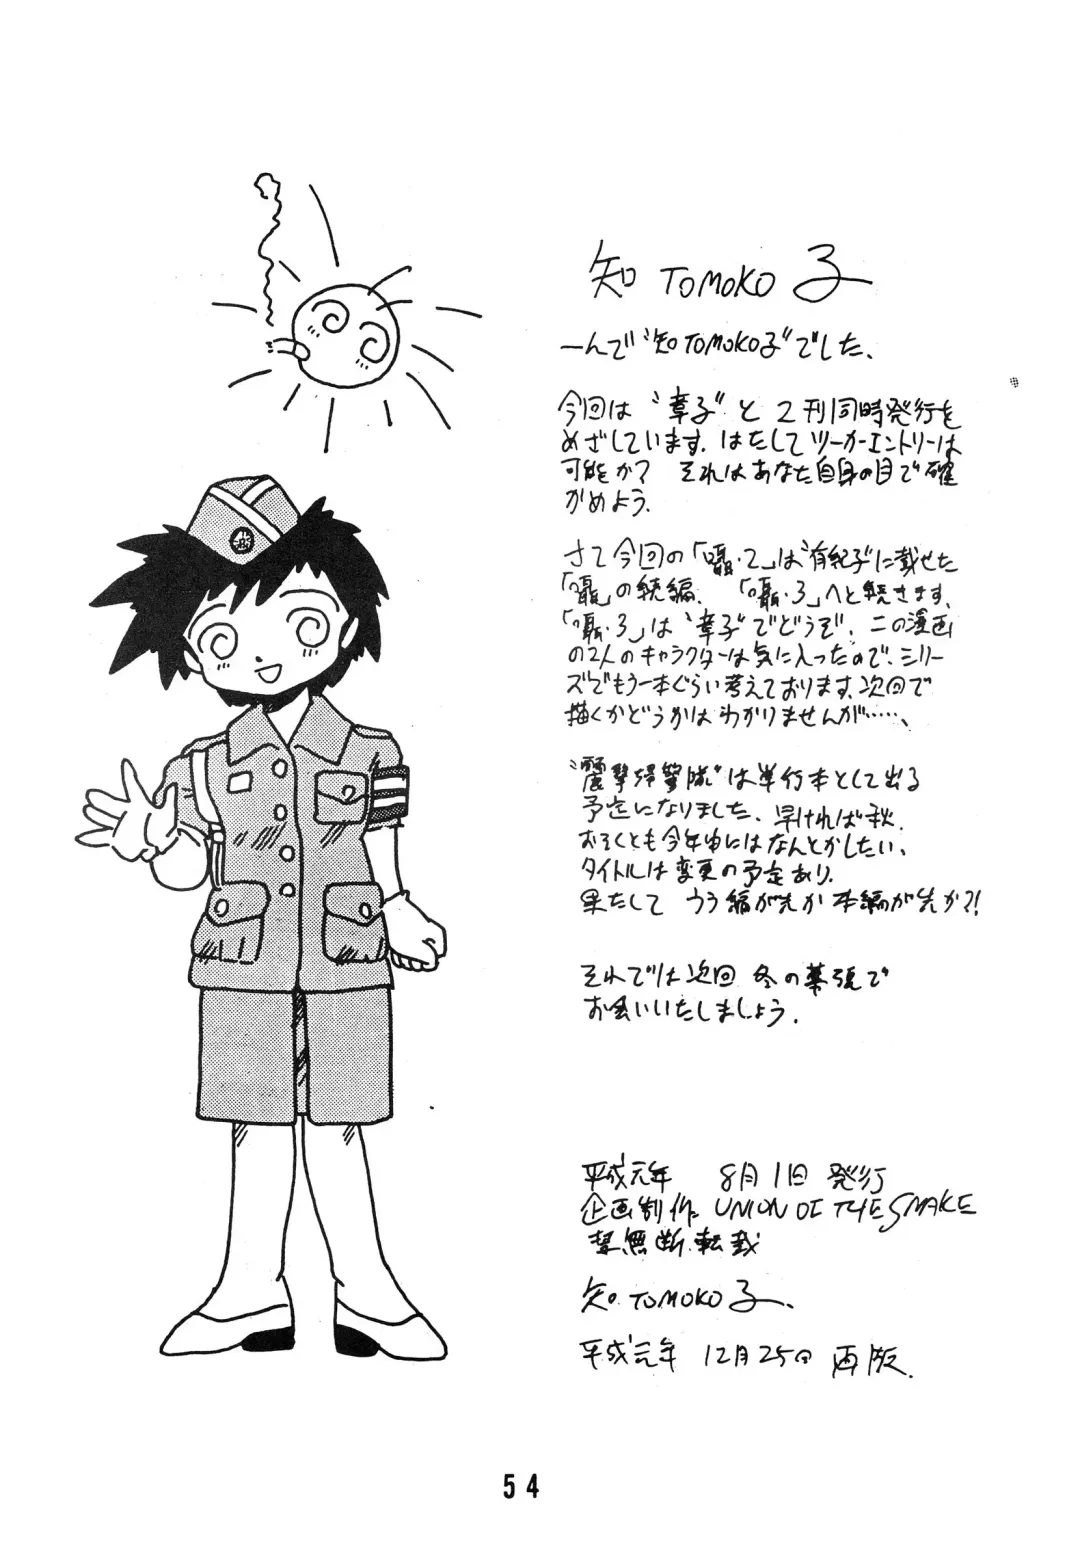 知 TOMOKO 子
ーんで“知TOMOKO子”でした、
今回は“章子”と2刊同時発行を
めざしています.はたしてツーカーエントリーは
可能か? それはあなた自身の目で確
かめよう.
さて今回の「囁・2」は“有紀子”に載せた
「囁」の続編、「囁・3」へと続きます、
「囁・3」は“章子”でどうぞ、この漫画
の2人のキャラクターは気に入ったので、シリー
ズでもう一本ぐらい考えております、次回で
描くかどうかはわかりませんが……、
は単行本として出る
予定になりました、早ければ秋、
おそくとも今年中にはなんとかしたい、
タイトルは変更の予定あり、
果たして うら編が先か 本編が先か?!
それでは次回 冬の幕張で
お会いいたしましょう.
平成元年 8月1日 発行
企画制作 UNION OF THE SNAKE
禁無断転載
知 TOMOKO 子、
平成元年 12月25日 再版.
54